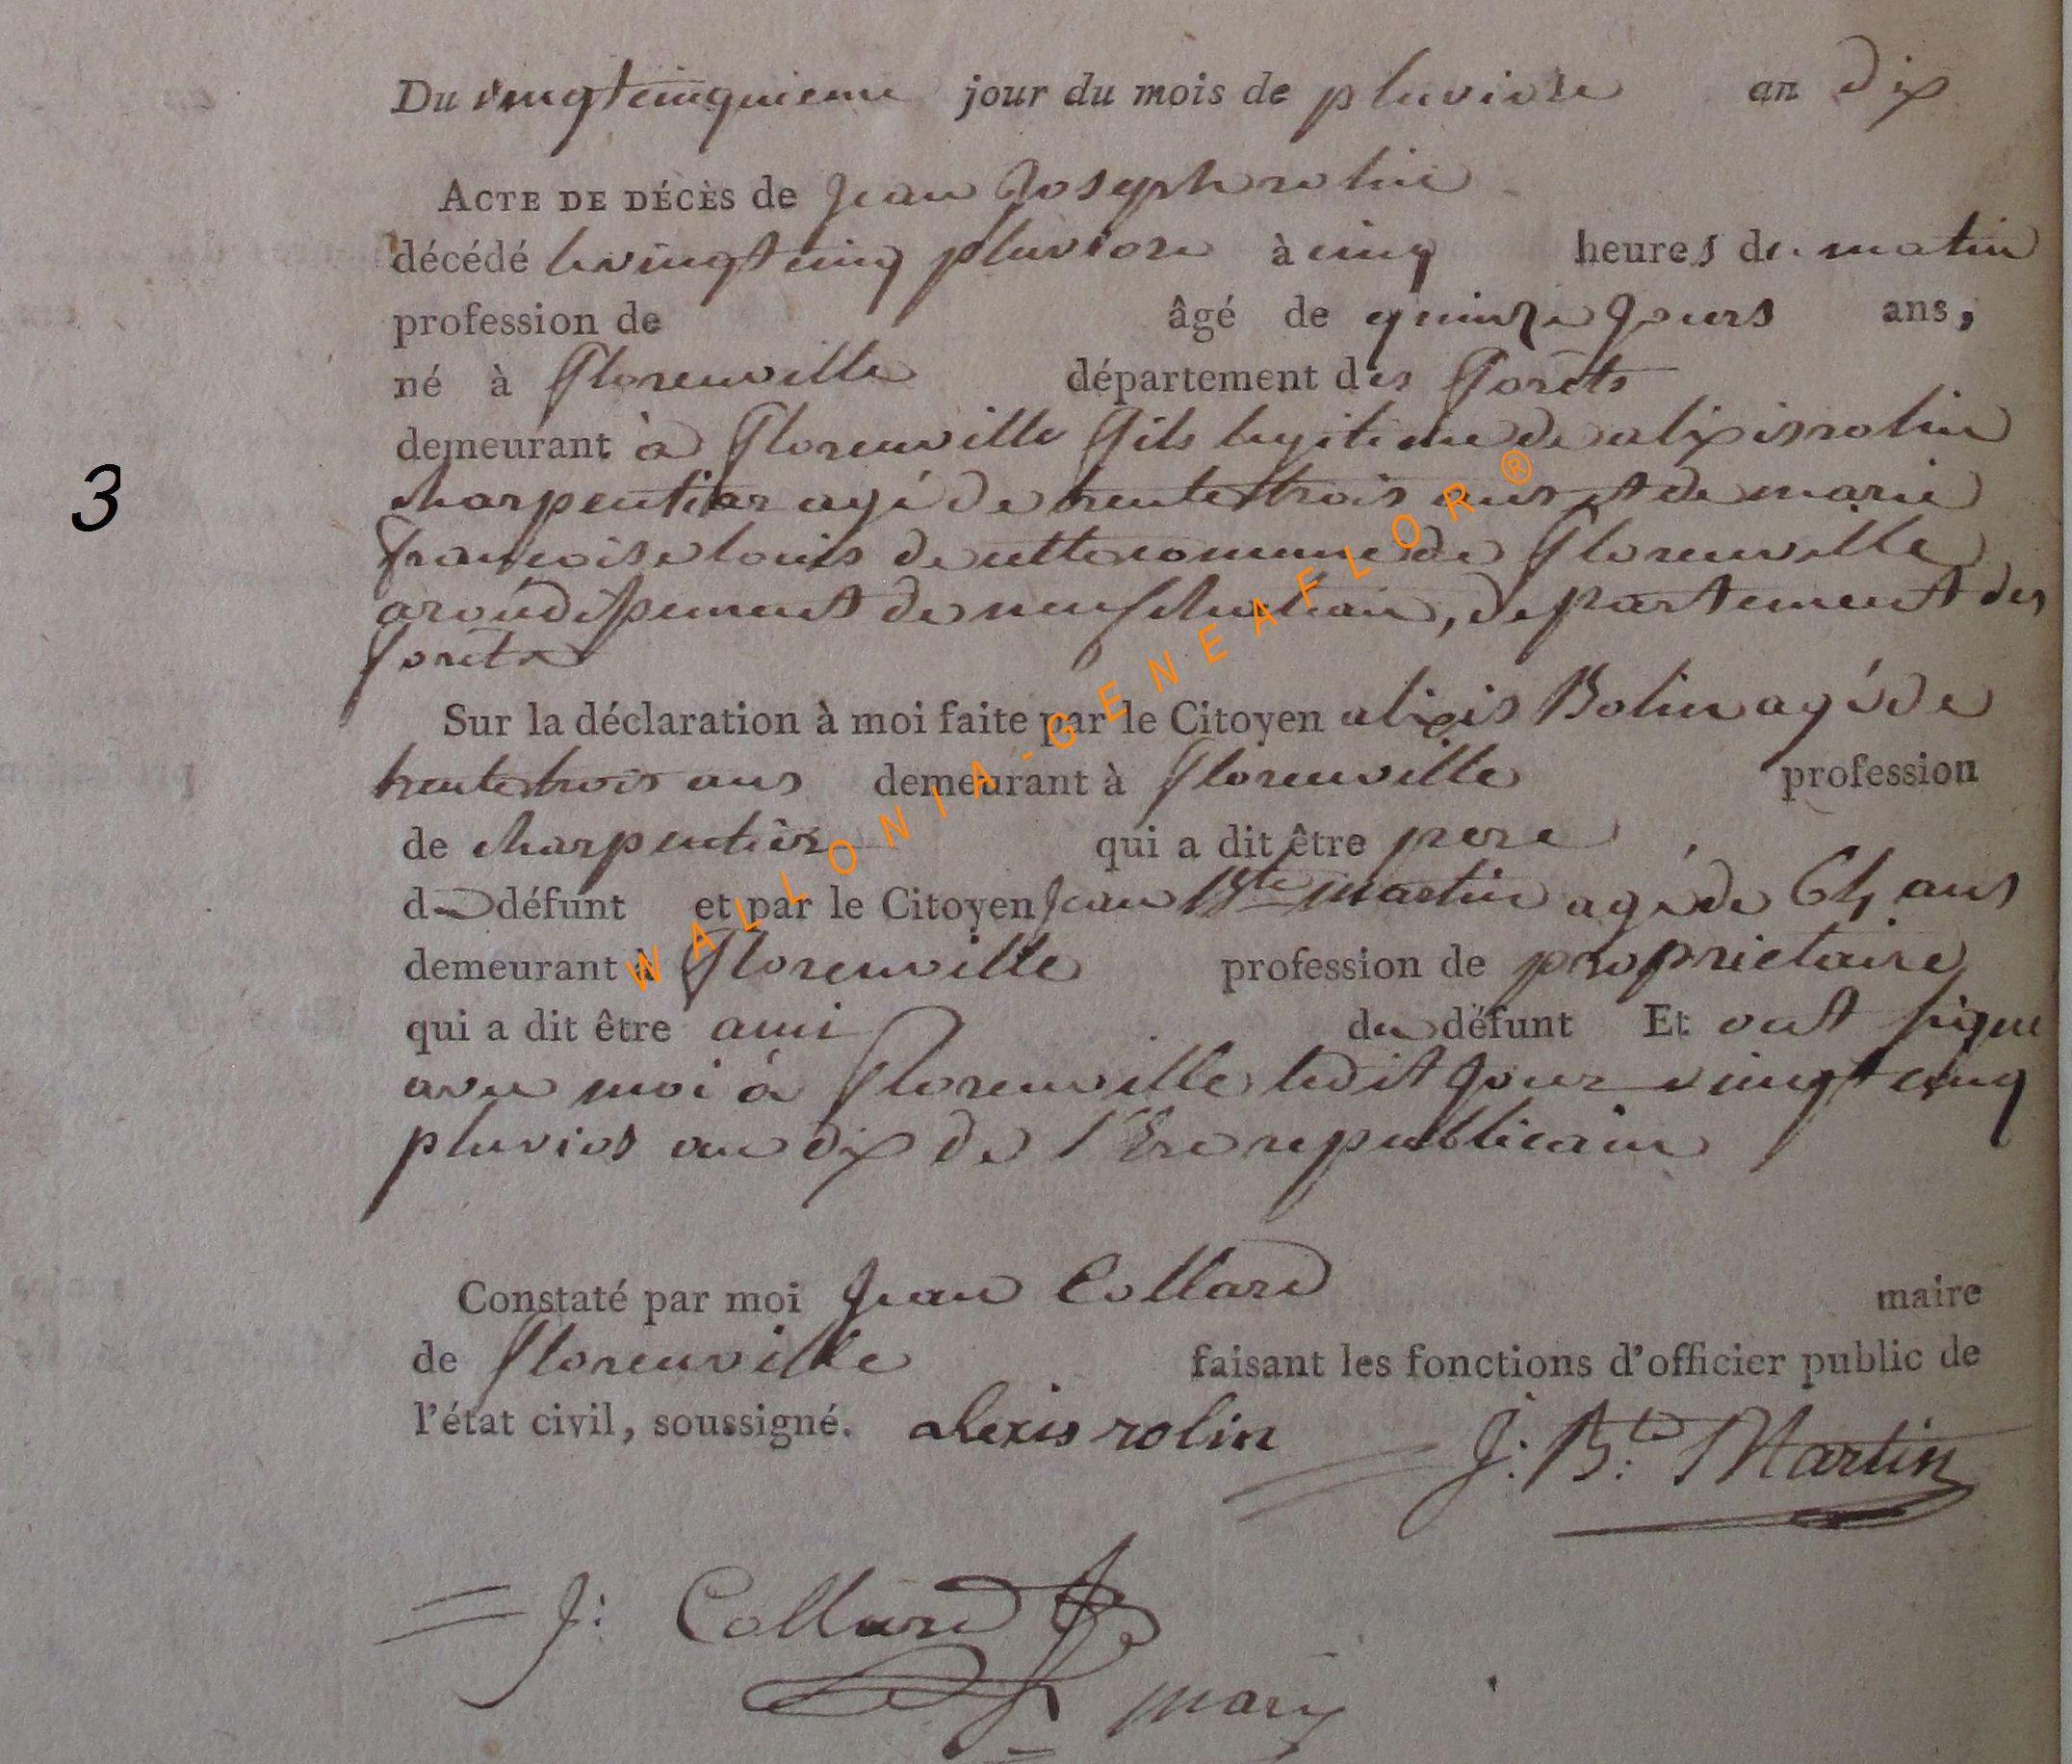 Du vingtcinquieme jour du mois de pluviose an dix
ACTE DE DÉCÈS de jean Joseph rolin
décédé le vingt cinq pluviose à cinq heures du matin
profession de âgé de quinze jours ans,
né à Florenville département des Forêts
demeurant à Florenville fils legitime de alixis rolin
charpentier agé de trente trois ans et de marie
françoise louis de cette comune de Florenville
arondissement de neufchateau, departement des
forêts
3
Sur la déclaration à moi faite par le Citoyen alixis Rolin agé de
trente trois ans demeurant à florenville profession
de charpentier qui a dit être pere
du défunt et par le Citoyen jean Bte martin agé de 64 ans
demeurant à Florenville profession de proprietaire
qui a dit être ami du défunt Et ont signe
avec moi à florenville ledit jour vingt cinq
pluvios an dix de l'Ere republicaine
Constaté par moi jean Collard maire
de florenville faisant les fonctions d'officier public de
l'état civil, soussigné. alexis rolin J: Bte: Martin
J: Collard
mair
WALLONIA-GENEAFLOR®